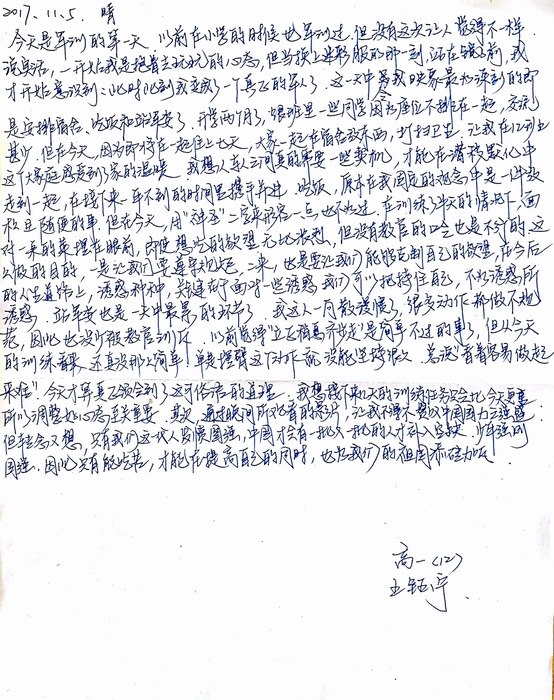 2017.11.5. 晴
今天是军训的第一天。以前在小学的时候也军训过,但没有这次让人觉得不一样。
说实话,一开始我是抱着去玩玩的心态,但当换上迷彩服的那一刻,站在镜子前,我
才开始意识到:此时此刻我变成了一个真正的军人了。这一天中令我印象最为深刻的即
是安排宿舍、吃饭和站军姿了。开学两个月了,班里一些同学因为座位不排在一起,交流
甚少。但在今天,因为即将在一起住上七天,大家一起在宿舍放东西,打扫卫生,让我在12班
这个大家庭感受到了家的温暖。我想人与人之间真的需要一些契机,才能在潜移默化中
走到一起,在接下来一年不到的时间里携手并进。吃饭,原本在我固定的观念中是一件没
枚且随便的事,但在今天,用“神圣”二字来形容一点也不为过。在训练了半天的情况下,面
对一桌的菜摆在眼前,即使想吃的欲望无比强烈,但没有教官的口令也是不可的。这
么做的目的,一是让我们要遵守规范,二来,也是要让我们能够克制自己的欲望,在今后
的人生道路上,诱惑种种,关键在于面对一些诱惑,我们可以把持住自己,不为诱惑所
诱惑。站军姿也是一天中最累的环节了。我这人一向散漫惯了,很多动作都做不规
范,因此也没少被教官训斥。以前觉得“立正稍息齐步走”是简单不过的事了,但从今天
的训练看来,还真没那么简单,单是摆臂这个动作就没能坚持很久。若说“看着容易做起
来难”,今天才算真正领会到了这句俗语的道理。我想接下来几天的训练任务只会比今天更重
所以调整好心态至关重要。其次,通过晚间所观看的影片,让我不得不赞叹中国国力之强盛
但转念又想,只有我们这代人发愤图强,中国才会有一批又一批的人才补入空缺。少年强则
国强。因此只有能吃苦,才能在提高自己的同时,也为我们的祖国添砖加瓦。
高一(12)
王钰宁